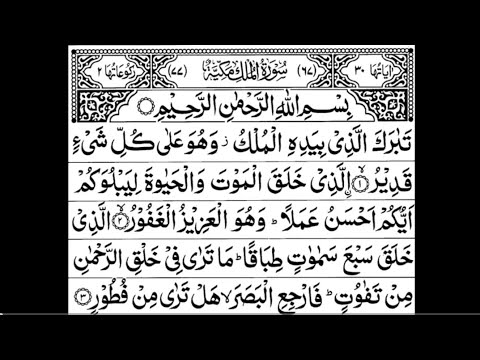 اٰیَاتُهَا ۳۰ (۶۷) سُوْرَةُ الْمُلْكِ مَكِّیَّةٌ (۷۷) رُكُوْعَاتُهَا ۲
بِسْمِ اللّٰهِ الرَّحْمٰنِ الرَّحِیْمِ
تَبٰرَكَ الَّذِیْ بِیَدِهِ الْمُلْكُ ؗ وَهُوَ عَلٰی كُلِّ شَیْءٍ
قَدِیْرُ ۙ﴿۱﴾ اِ۟لَّذِیْ خَلَقَ الْمَوْتَ وَالْحَیٰوةَ لِیَبْلُوَكُمْ
اَیُّكُمْ اَحْسَنُ عَمَلًا ؕ وَهُوَ الْعَزِیْزُ الْغَفُوْرُ ۙ﴿۲﴾ الَّذِیْ
خَلَقَ سَبْعَ سَمٰوٰتٍ طِبَاقًا ؕ مَا تَرٰی فِیْ خَلْقِ الرَّحْمٰنِ
مِنْ تَفٰوُتٍ ؕ فَارْجِعِ الْبَصَرَ ۙ هَلْ تَرٰی مِنْ فُطُوْرٍ ﴿۳﴾